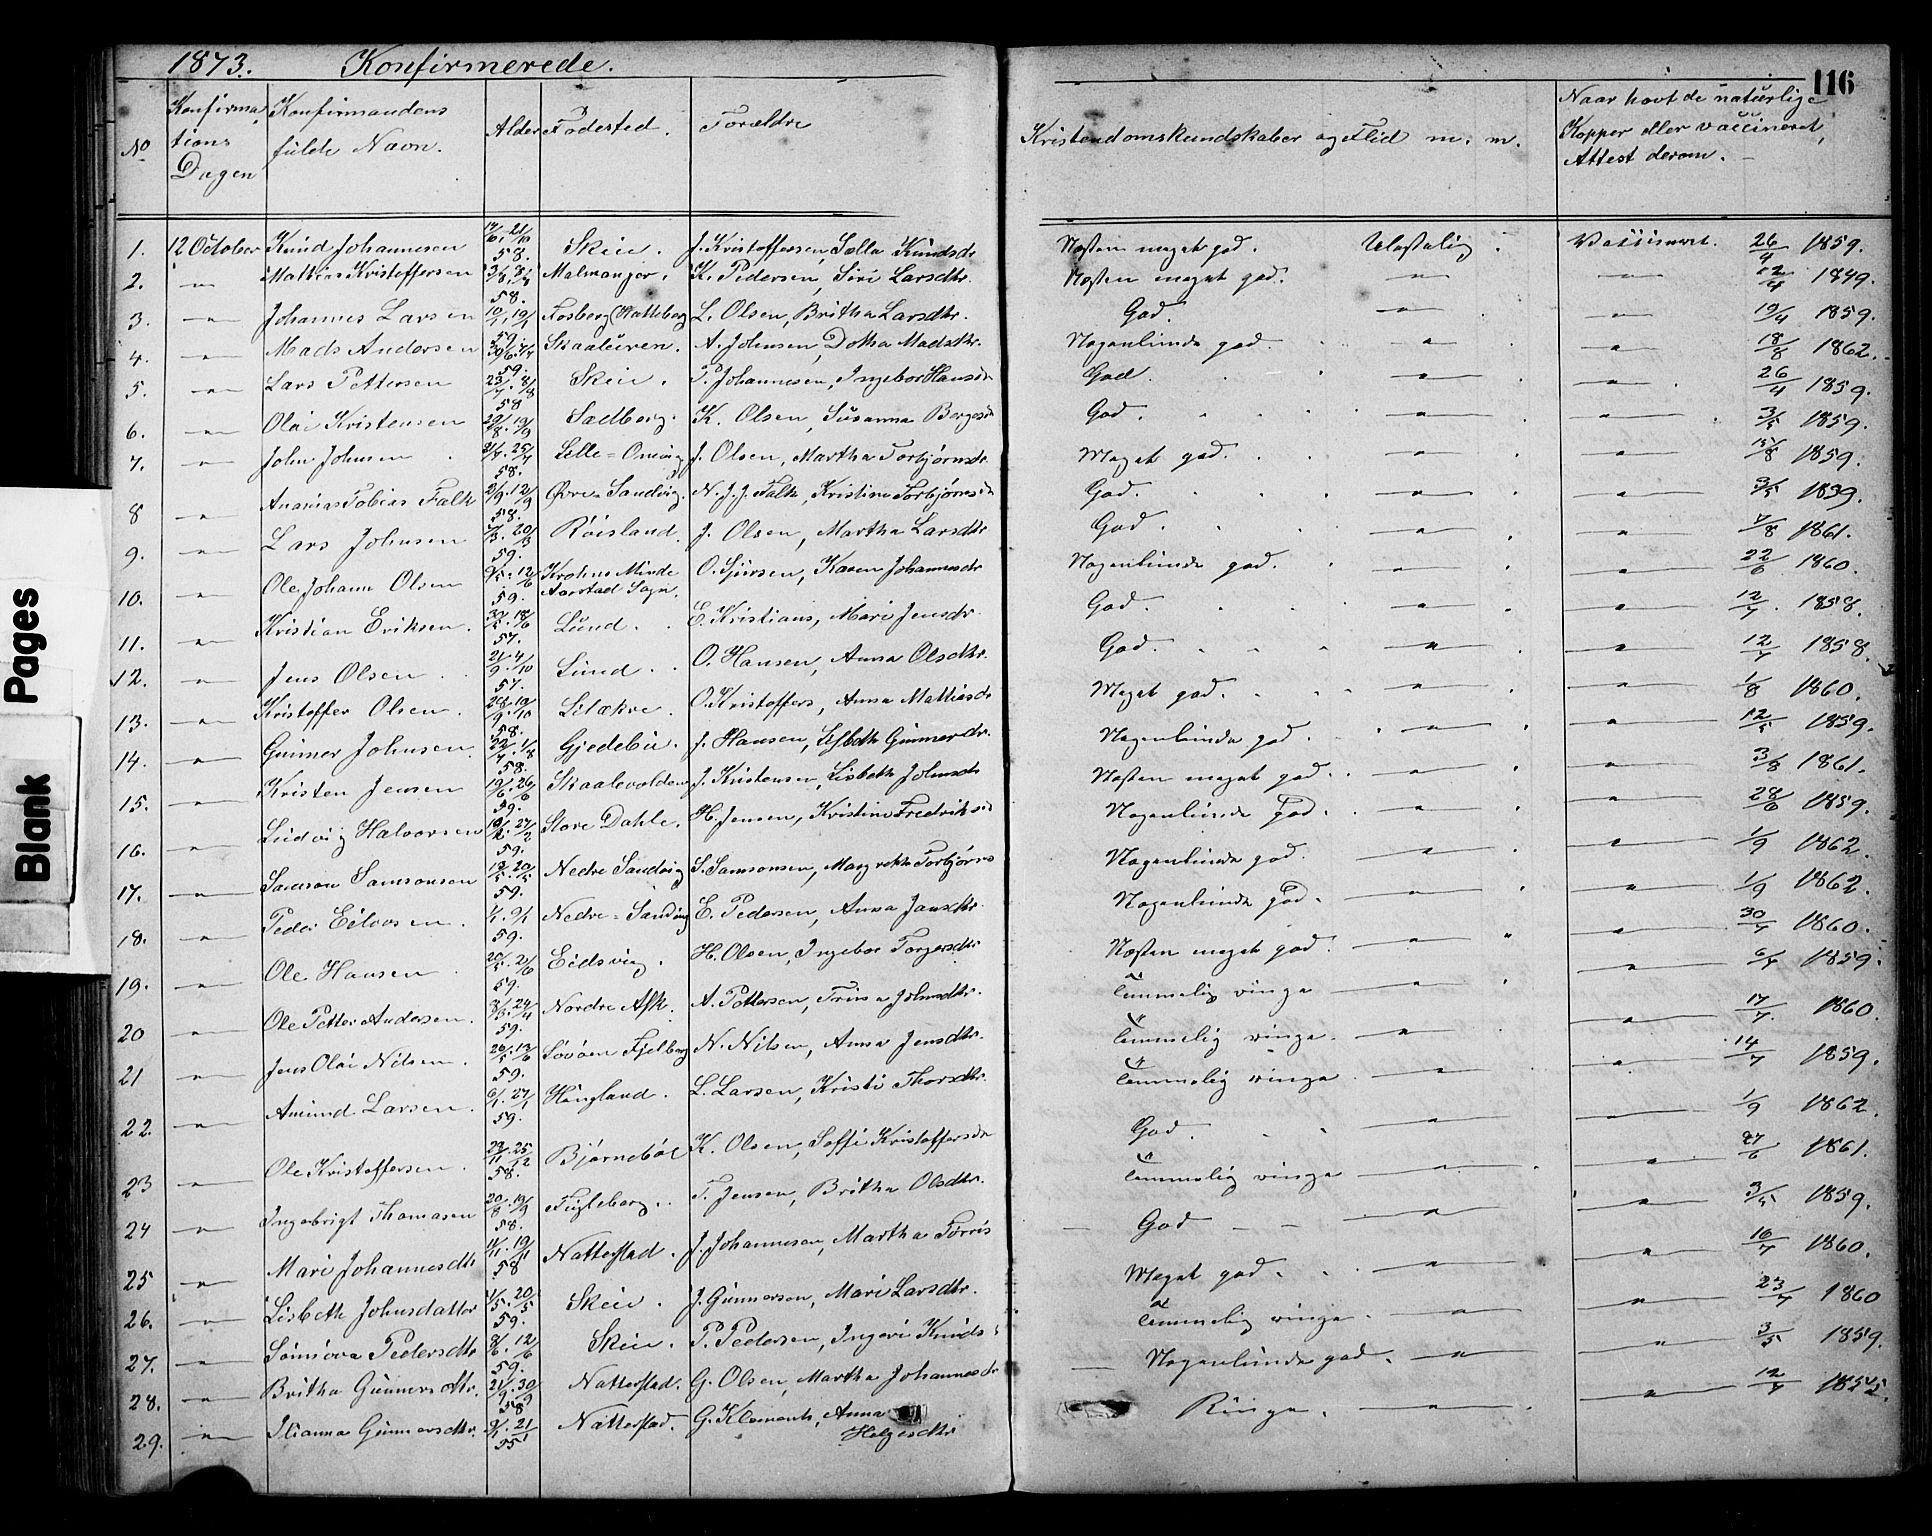 1873. Konfirmerede.
116
No Konfirmationsdagen Konfirmandens fulde Navn. Alder Fødested. Forældre Kristendomskundskaber og Flid m. m. Naar havt de naturlige Kopper eller vaccineret, Attest derom.
1. 12 October Knud Johannesen 58. Skeie. J. Kristoffersen, Knudsdr Næsten meget god. Ulastelig. Vaccineret. 26/4 1859.
2. " Mathias Kristoffersen 58. Malmanger. K. Pedersen, Siri Larsdtr. Næsten meget god. " " 12/4 1849.
3. " Johannes Larsen 10/1. 19/1 59. L. Olsen, Britha Larsdtr. God. " " 19/4 1859.
4. " Mads Andersen 30/6. 59. Skaaluren. A. Johnsen, Dotha Madsdtr. Nogenlunde god. " " 18/8 1862.
5. " Lars Pettersen 23/7. 8/8 58 Skeie. P. Johannesen, Ingebor Hansd God. " " 26/4 1859.
6. " Olai Kristensen 29/8. 19/9 Sædberg. K. Olsen, Susanna Børgesd God. " " 3/5 1859.
7. " John Johnsen 58. Lille=Omvig J. Olsen, Martha Torbjørnsdr. Meget god. " " 15/8 1859.
8 " Ananias Tobias Falk 2/9. 12/9 58. Øvre=Sandvig. N. J. J. Falk, Kristine Torbjørnsd God. " " 3/5 1859.
9. " Lars Johnsen 20/3 59. Røisland. J. Olsen, Martha Larsdtr God. " " 7/8 1861.
10. " Ole Johann Olsen 12/6 59. Krohns Minde Aarstad Sogn. O. Sjursen, Karen Johannesdr Nogenlunde god. " " 22/6 1860.
11. " Kristian Eriksen. 57. Lund. E. Kristians, Mari Jensdr. God. " " 12/7. 1858.
12. " Jens Olsen. 21/9. 4/10 57. Lund. O. Hansen, Anna Olsdtr. God. " " 12/7 1858.
13. " Kristoffer Olsen. 28/9. 19/10 58. Liøkre. O. Kristoffers, Anna Mathiasdr Meget god. " " 1/8 1860.
14. " Gunner Johnsen. 22/7. 1/8 58. Gjedebu. J. Hansen, Lisbeth Gunnerdr. Nogenlunde god. " " 12/5 1859.
15. " Kristen Jensen 19/6. 26/6 59. Skaalevolden J. Kristensen, Lisbeth Johnsdr Næsten meget god. " " 3/8 1861.
16. " Ludvig Halvorsen 27/2 59. Store Dahle. H. Jensen, Kristine Fredriksd Nogenlunde god. " " 28/6 1859.
17. " Samson Samsonsen 13/5. 20/5 59. Nedre Sandvig S. Samsonsen, Margrethe Torbjørns Nogenlunde god. " " 1/9 1862.
18. " Peder Eilersen. 59. Nedre=Sandvig E. Pedersen, Anna Jansdtr. Nogenlunde god. " " 1/9 1862.
19. " Ole Hansen 20/5. 21/6 59. Eidsvig. H. Olsen, Ingebor Torgersdtr Næsten meget god. " " 30/7 1860.
20 " Ole Petter Andersen. 24/4 59. Nordre Ask. A. Pettersen, Trina Johnsdtr. Temmelig ringe " " 6/7 1859.
21 " Jens Olai Nilsen. 26/5. 13/6 59. Løvøen Fjelberg N. Nilsen, Anna Jensdtr. Temmelig ringe. " " 17/7. 1860.
22. " Amund Larsen. 6/1. 27/1 59. Haugland. L. Larsen, Kristi Thorsdtr. Temmelig ringe. " " 14/7 1859.
23 " Ole Kristoffersen. 25/12 58. Bjørnebøl K. Olsen, Soffi Kristoffersdr God. " " 1/9 1862.
24 " Ingebrigt Thomasen 20/8. 19/9 58. Fugleberg. T. Jensen, Britha Olsdtr. Temmelig ringe " " 27/6 1861.
25 " Mari Johannesdtr 19/11 58 Natterstad. J. Johannesen, Martha Tørris God " " 3/5 1859.
26. " Lisbeth Johnsdatter 20/5 59. Skeie. J. Gunnersen, Mari Larsdtr. Meget god. " " 16/7 1860.
27. " Sønnøva Pedersdtr 12/6 59. Skeie. P. Pedersen, Ingeri Knuds Temmelig ringe. " " 23/7 1860
28. " Britha Gunnersdtr. 21/9. 30/9 58 Natterstad. G. Olsen, Martha Johannesdr Nogenlunde god. " " 3/5 1859.
29. " Ilianna Gunnersdtr. 21/1 55 Natterstad. G. Klements, Anna Helgesdtr Ringe. " " 12/7
Blank Pages